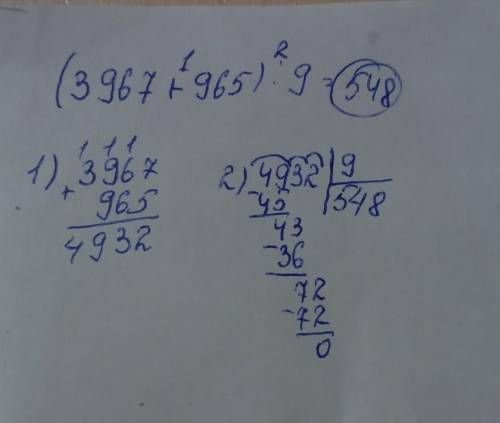 1 2
(3967 + 965) : 9 = 548
1 1 1
1) 3967
+
965
4932
2) 4932 | 9
- 45 | 548
43
- 36
72
- 72
0